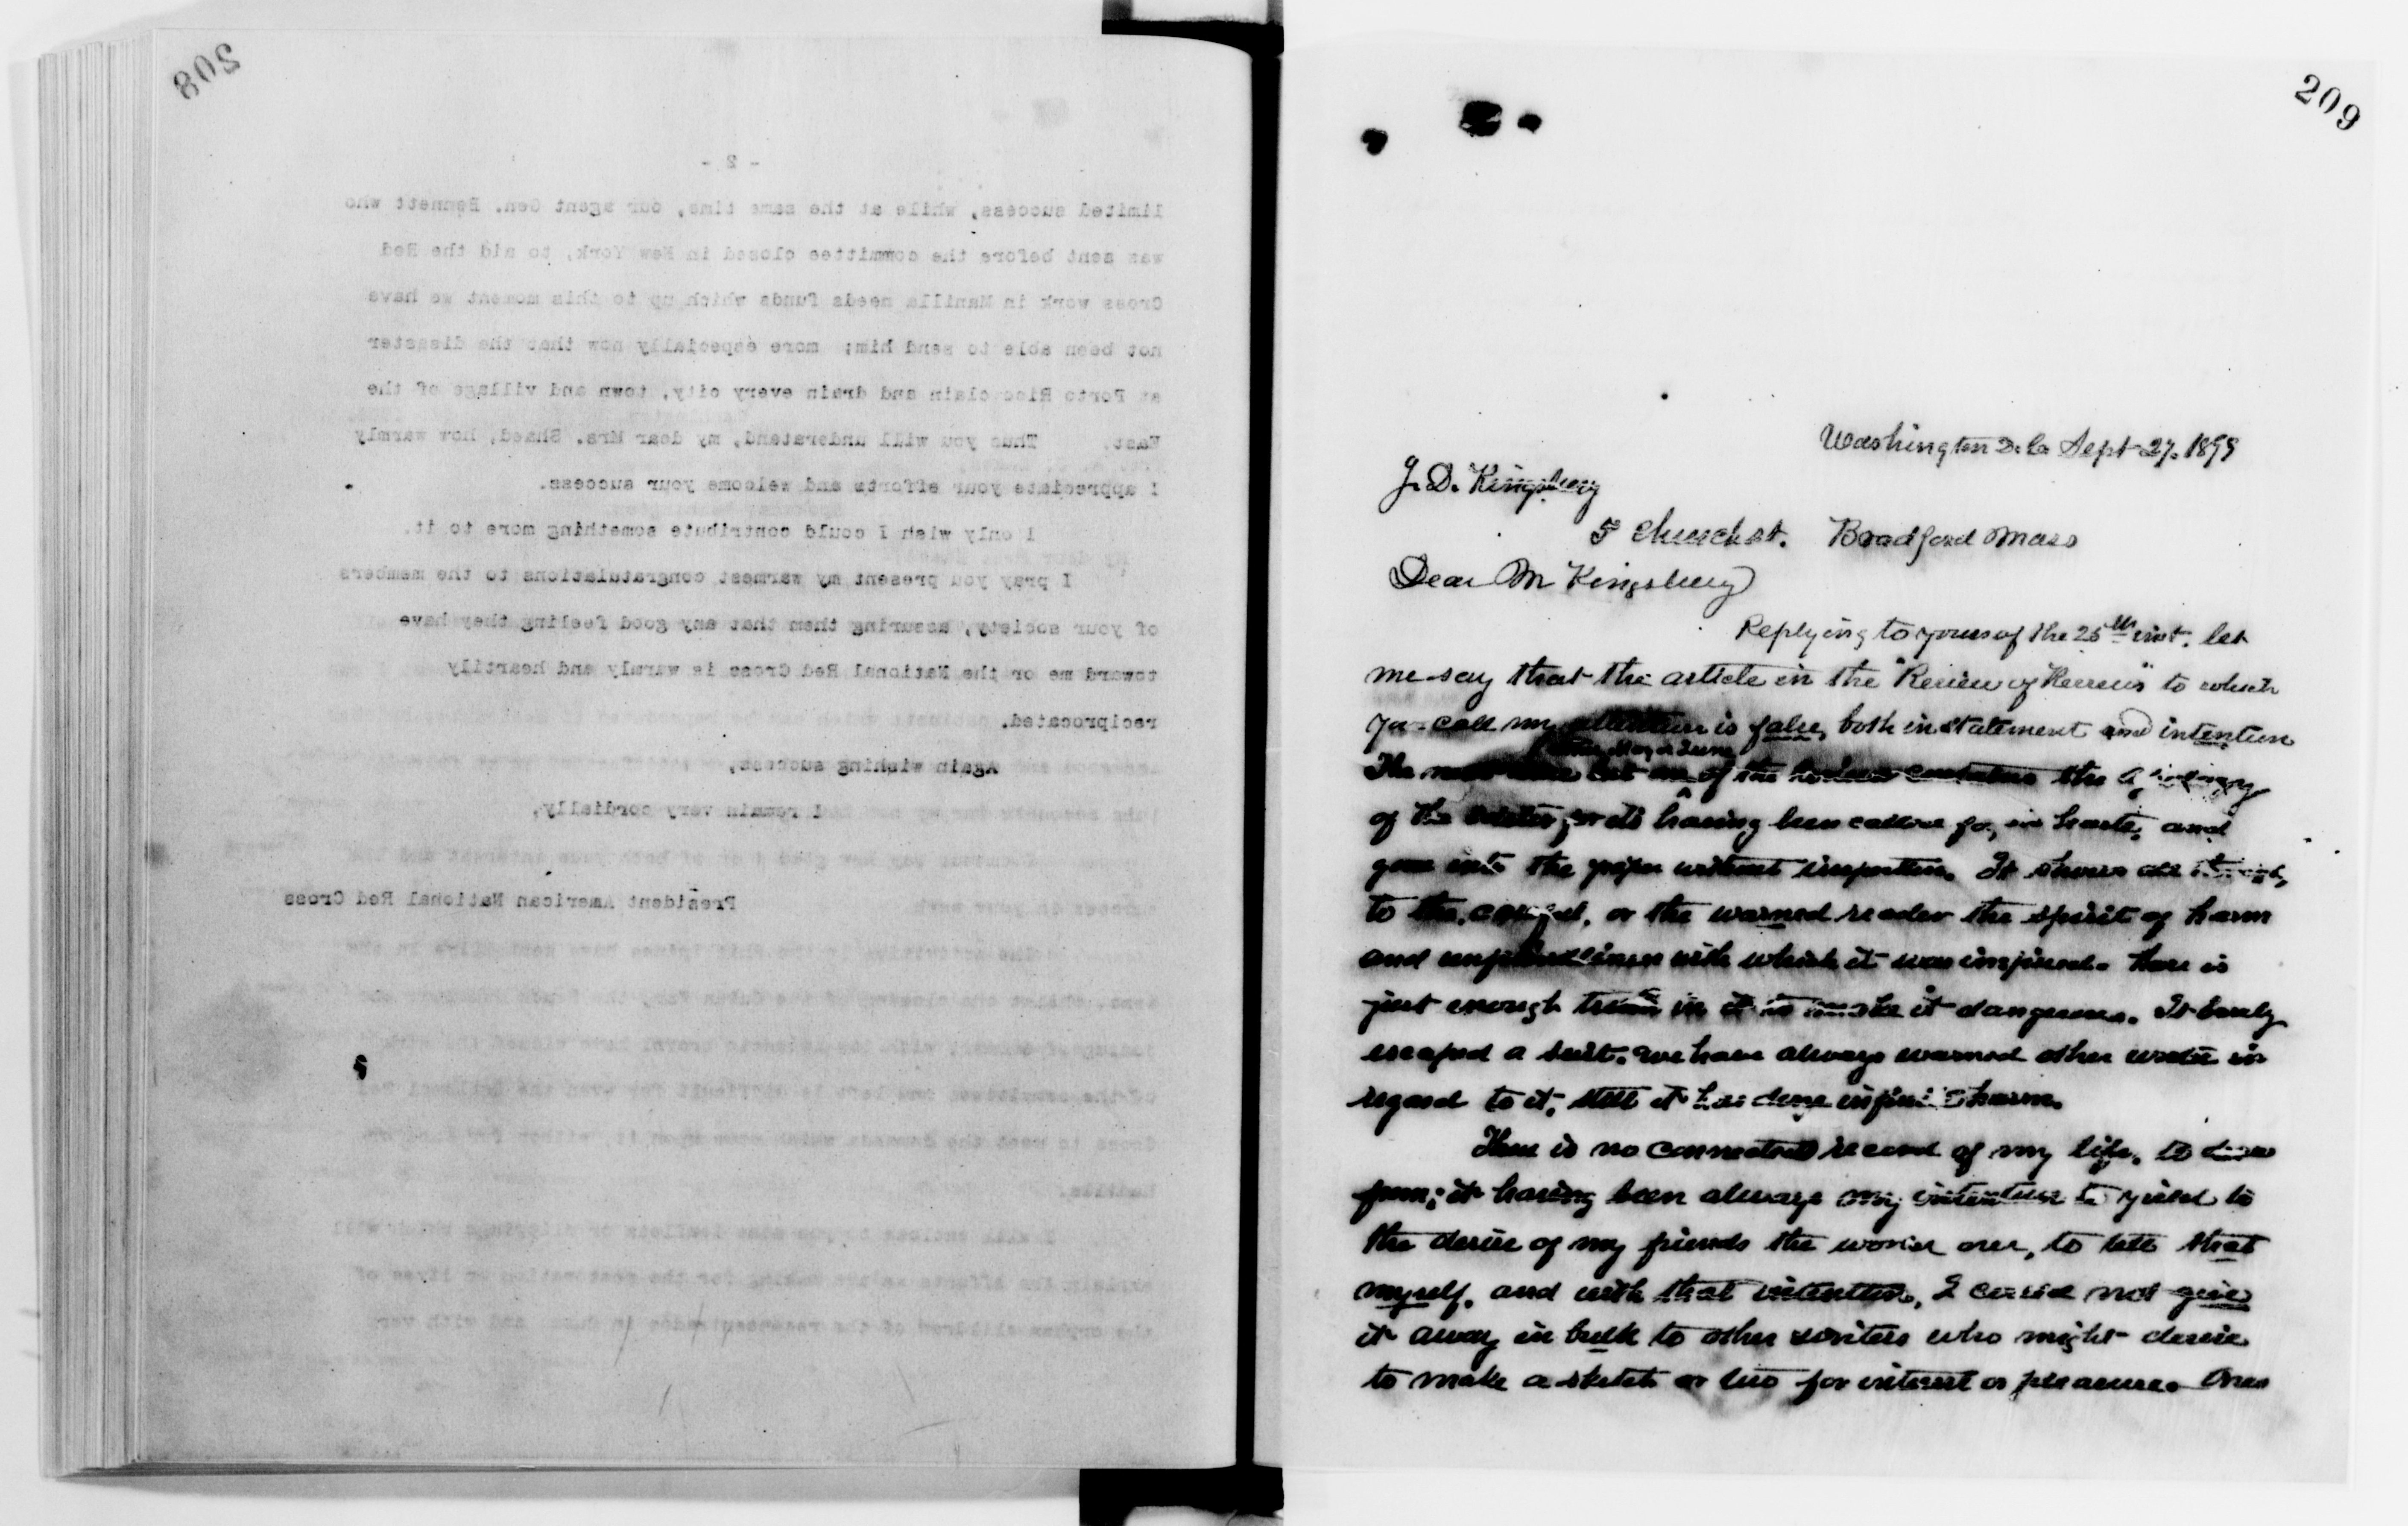 208
- 2 -
limited success, while at the same time, our agent Gen. Bennett who
was sent before the committee closed in New York, to aid the Red
Cross work in Manilla needs funds which up to this moment we have
not been able to send him; more especially now that the disaster
at Porto Rico claim and drain every city, town and village of the
East. Thus you will understand, my dear Mrs. Shaed, how warmly
I appreciate your efforts and welcome your success.
I only wish I could contribute something more to it.
I pray you present my warmest congratulations to the members
of your society, assuring them that any good feeling they have
toward me or the National Red Cross is warmly and heartily
reciprocated.
Again wishing success,
I remain very cordially,
President American National Red Cross
209
Washington D.C. Sept 27. 1899
J. D. Kingsbury
5 Church st. Bradford Mass
Dear Mr Kingsbury
Replying to yours of the 25th inst. let
me say that the article in the "Review of Reviews" to which
you call my attention is false, both in statement and intention
May or June
The next one of the the apology
of the for its having been called for, in haste, and
gone into the paper without inspection. It shows all through,
to the careful, or the warned reader the spirit of harm
and unfriendliness with which it was inspired. There is
just enough truth in it to make it dangerous. It barely
escaped a suit. We have always warned other writers in
regard to it, still it has done infinite harm.
There is no connected record of my life, to draw
from; it having been always my intention to yield to
the desire of my friends the world over, to tell that
myself, and with that intention, I could not give
it away in bulk to other writers who might desire
to make a sketch or two for interest or pleasure. Ones